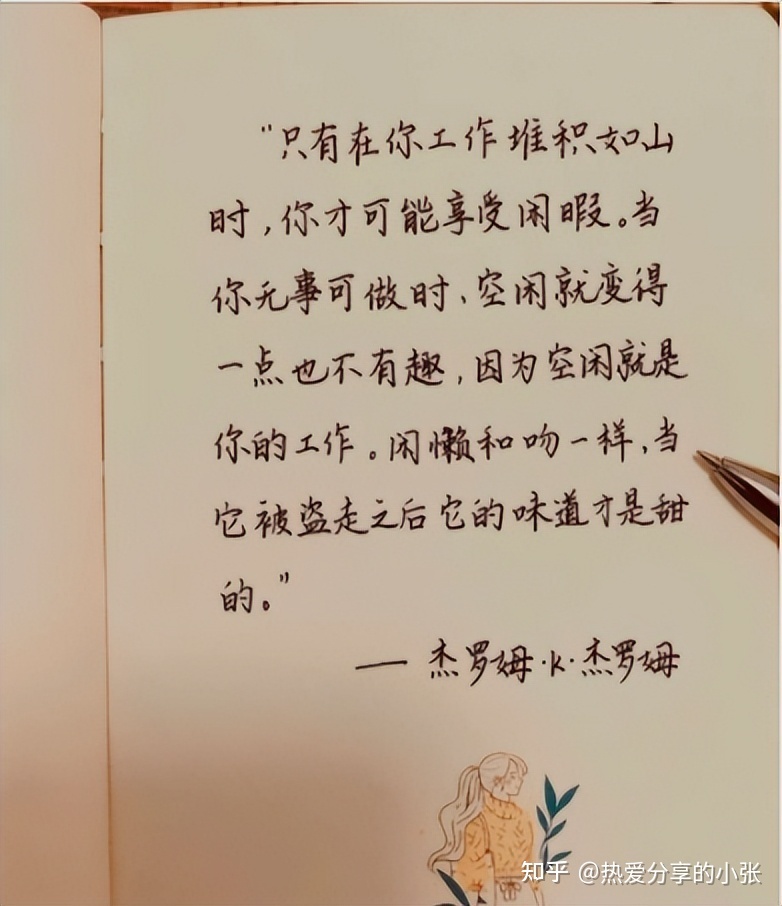 "只有在你工作堆积如山
时,你才可能享受闲暇。当
你无事可做时、空闲就变得
一点也不有趣,因为空闲就是
你的工作。闲懒和吻一样,当
它被盗走之后它的味道才是甜
的。"
— 杰罗姆·K·杰罗姆
知乎 @热爱分享的小张